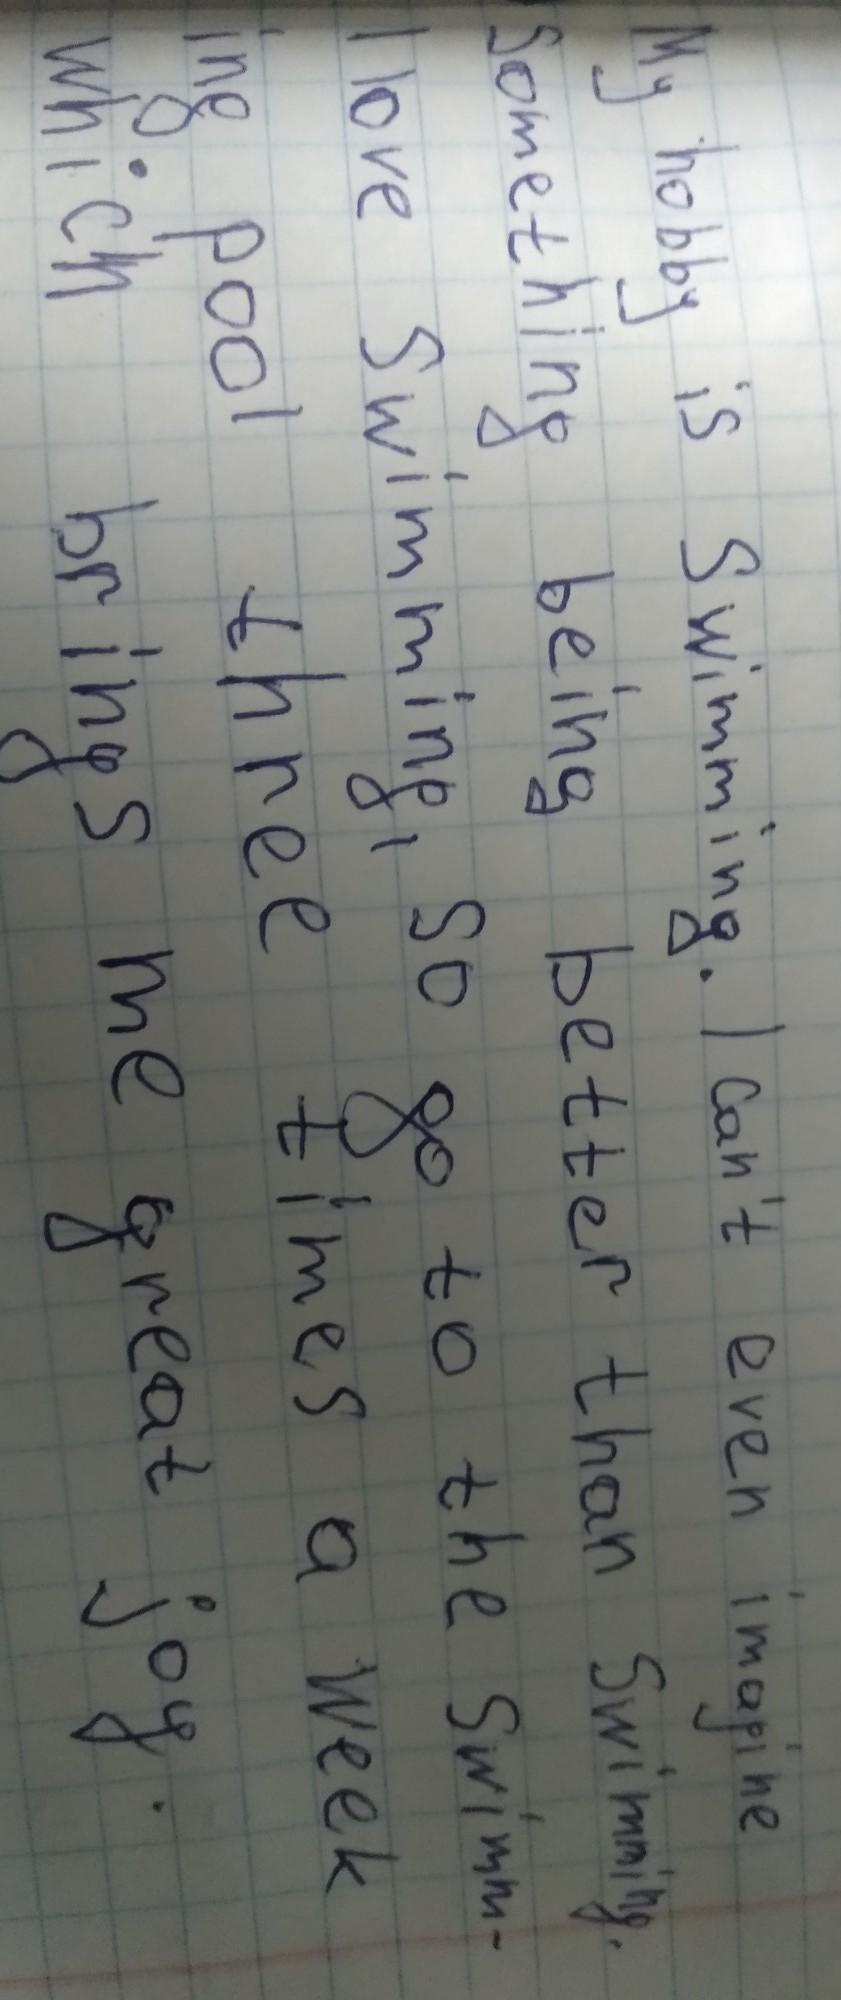 My hobby is Swimming. I can't even imagine
Something being better than Swimming.
I love Swimming, So go to the Swimm-
ing pool three times a week
which brings me great joy.